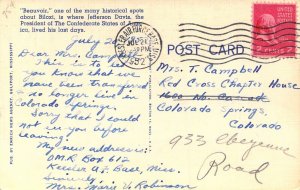 "Beauvoir," one of the many historical spots
about Biloxi, is where Jefferson Davis, the
President of The Confederate States of Amer-
ica, lived his last days.
POST CARD
July 20
Dear Mrs. Campbell
This is to let
you know that we
have been transferred
no longer live in
Colorado Springs.
Sorry that I could
not see you before
leaving!
My new address is:
Box 612
Keesler A.F. Base, Miss.
Sincerely,
Mrs. Marie V. Robinson
1952
Mrs. T. Campbell
Red Cross Chapter House
Colorado Springs,
Colorado
933 Cheyenne
Road